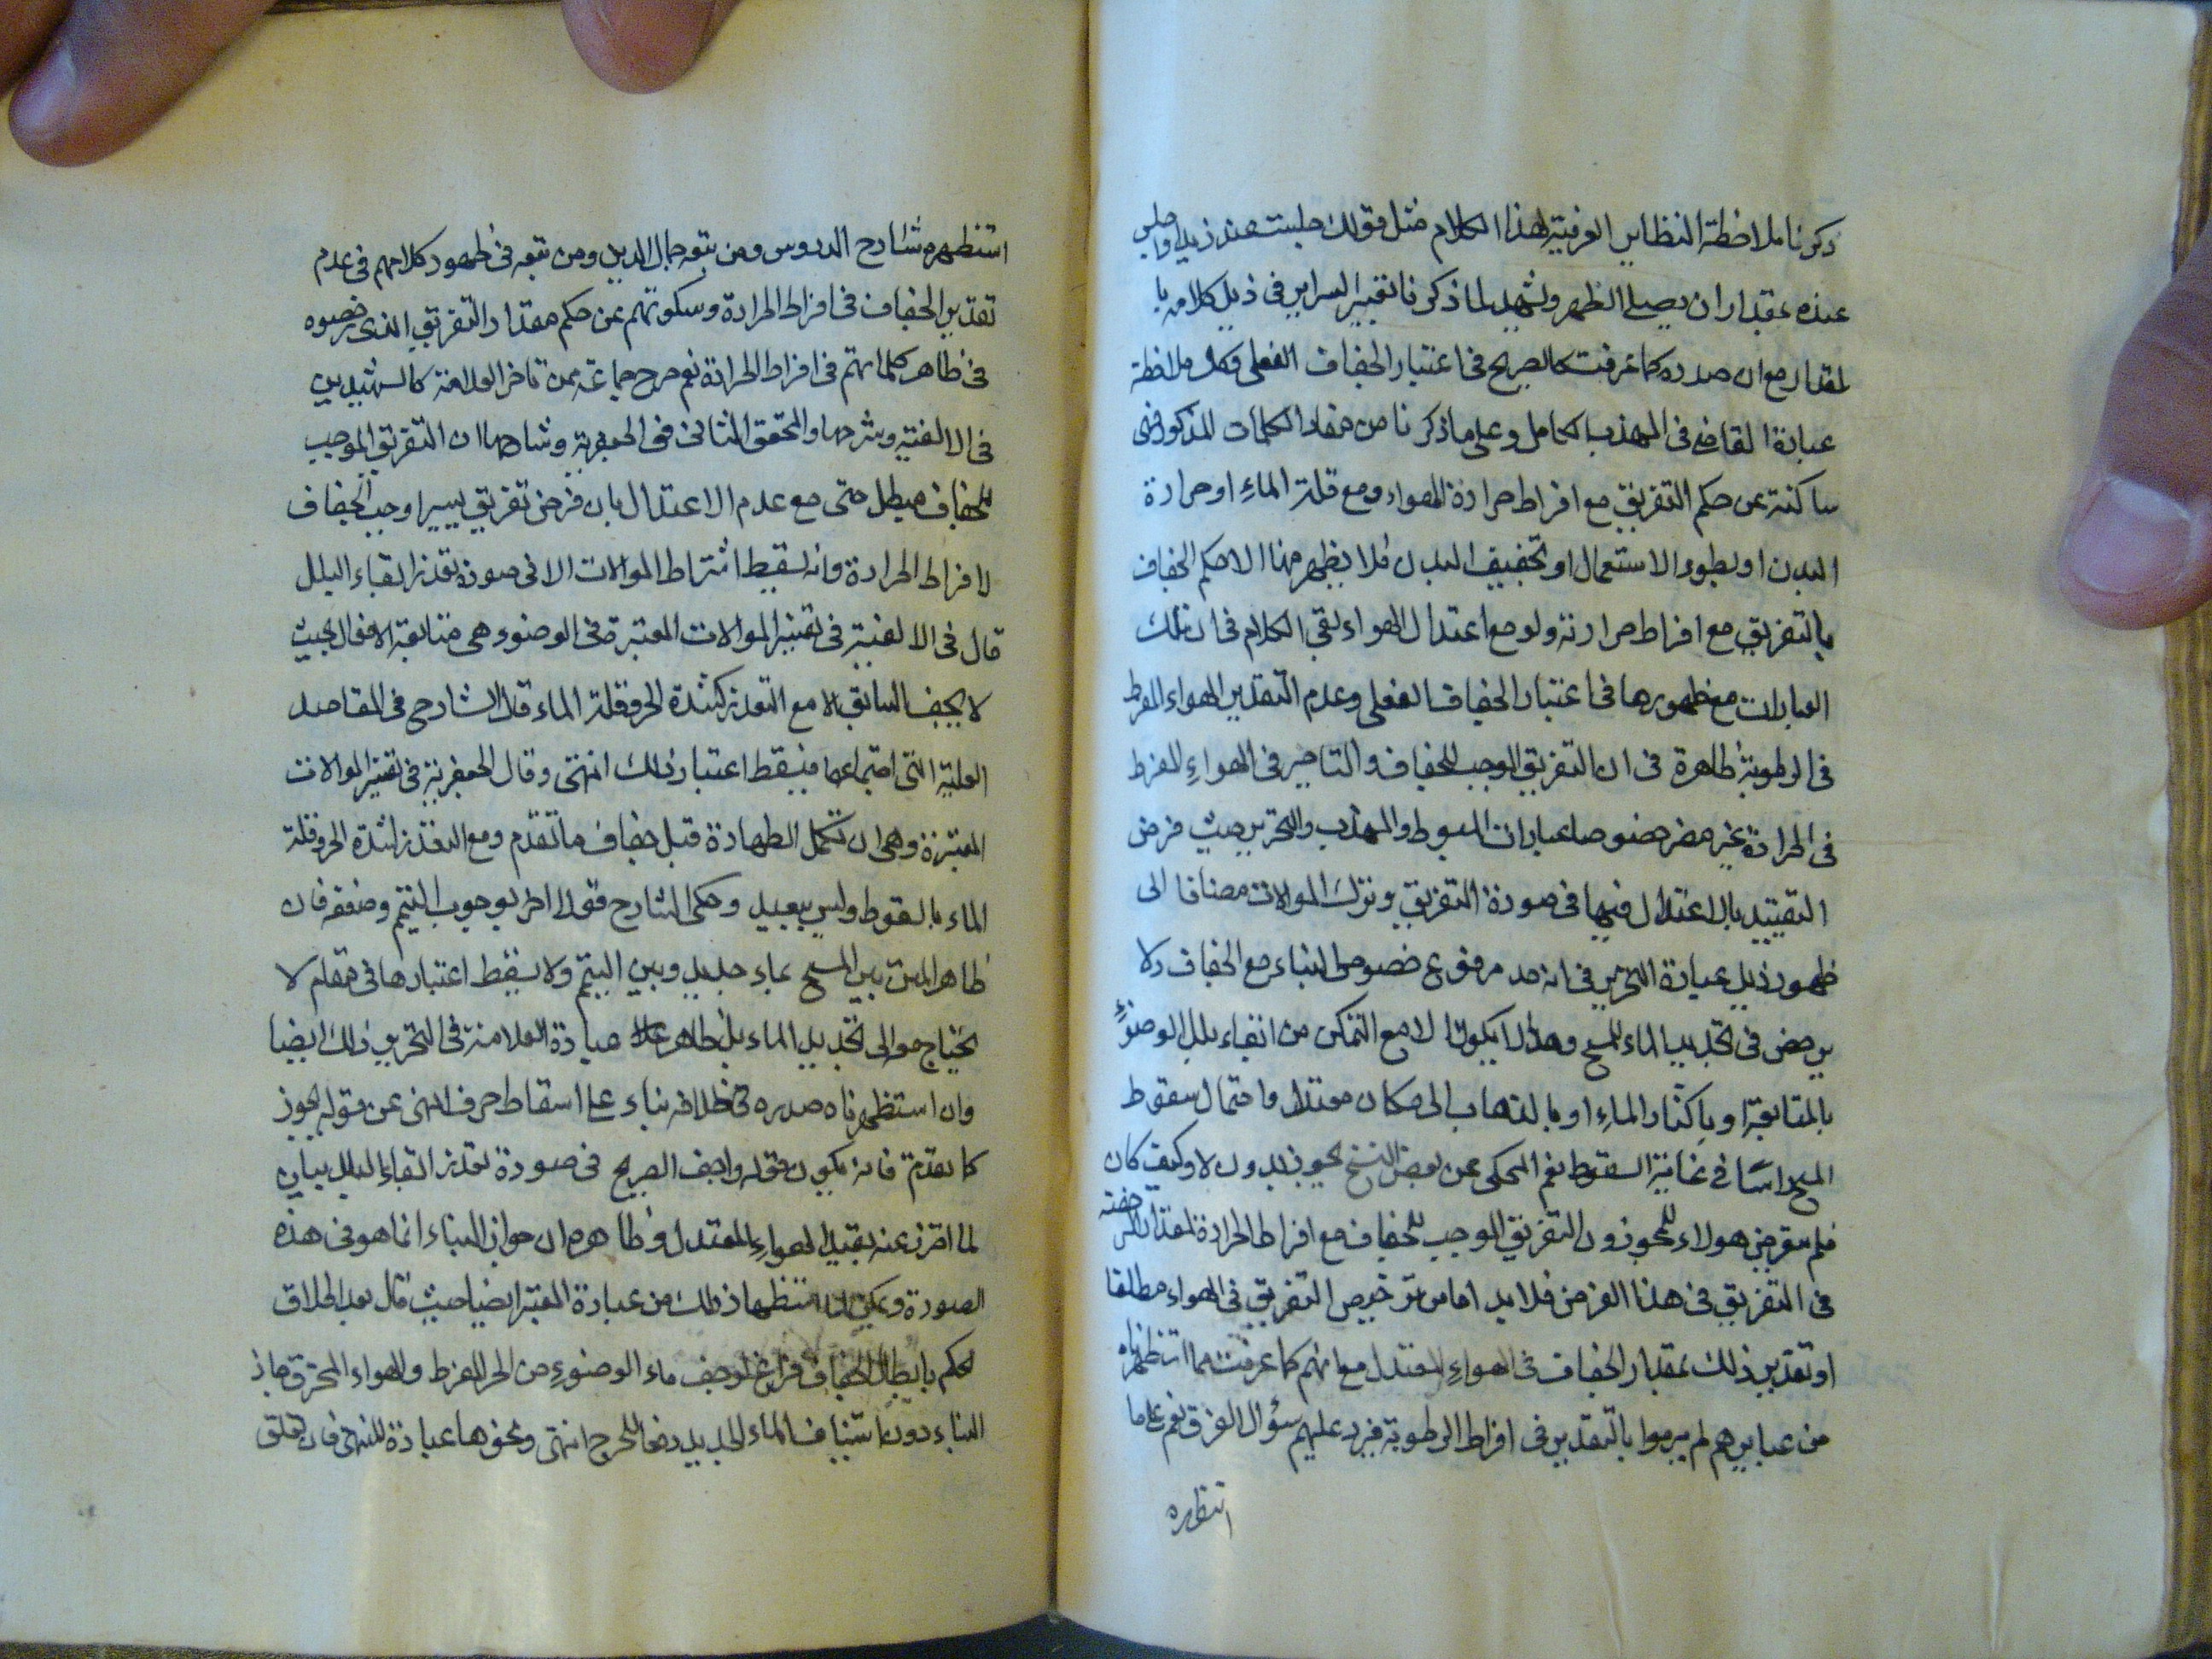 ذكرنا ملاحظة النظاير العرفية لهذا الكلام مثل قولك جلست عند زيد واجلس
عنده بمقدار ان يصلي الظهر ويشهد لما ذكرنا تقييد السراير في ذيل كلامه با
لمقدار مع ان صدره كما عرفت كالصريح في اعتبار الجفاف الفعلي فكك ملاحظة
عبارة القاضي في المهذب الكامل وعلى ما ذكرنا من مفاد الكلمات المذكورة فهى
ساكتة عن حكم التفريق مع افراط حرارة الهواء ومع قلة الماء او حرارة
البدن او بطوء الاستعمال او تجفيف البدن فلا يظهر منها الا حكم الجفاف
بالتفريق مع افراط حرارته ولو مع اعتدال الهواء بقي الكلام في ان تلك
العبارات مع ظهورها في اعتبار الجفاف الفعلي وعدم التقدير الهواء المفرط
في الرطوبة ظاهرة في ان التفريق الموجب للجفاف والتاخير في الهواء المفرط
في الحرارة غير مضر خصوصا عبارات المبسوط والمهذب والتحرير حيث فرض
التقييد بالاعتدال فيها في صورة التفريق وترك الموالات مضافا الى
ظهور ذيل عبارة التحرير في انه حد مرفوع خصوصا البناء مع الجفاف ولا
يرخص في تجديد الماء للمسح وهذا لا يكون الا مع التمكن من ابقاء بلل الوضوء
بالمتابعة او باكثار الماء او بالذهاب الى مكان معتدل واحتمال سقوط
المسح راسا في غاية السقوط نعم المحكي عن بعض النسخ يجوز بدون لا وكيف كان
فلم يتعرض هولاء المجوزون التفريق الموجب للجفاف مع افراط الحرارة لمقدار الرخصة
في التفريق في هذا الفرض فلابد اما من ترخيص التفريق في الهواء مطلقا
او تقدير ذلك بمقدار الجفاف في الهواء المعتدل مع انهم كما عرفت مما استظهرناه
من عبايرهم لم يرموا بالتقدير في افراط الرطوبة فيرد عليهم سؤال الفرق نعم على ما
استظهره
استظهره شارح الدروس ومن تبعه جمال الدين ومن تبعه في ظهور كلامهم في عدم
تقدير الجفاف في افراط الحرارة وسكوتهم عن حكم مقدار التفريق الذى رخصوه
في ظاهر كلماتهم في افراط الحرارة نعم صرح جماعة ممن تاخر العلامة كالشهيدين
في الالفية وشرحها والمحقق الثاني في الجعفرية وشارحها ان التفريق الموجب
للجفاف مبطل حتى مع عدم الاعتدال بان فرض تفريق يسير اوجب الجفاف
لافراط الحرارة وانه لسقط اشتراط الموالات الا في صورة تعذر ابقاء البلل
قال في الالفية في تفسير الموالات المعتبرة في الوضوء هي متابعة الافعال بحيث
لا يجف السابق الا مع التعذر كشدة الحر وقلة الماء قال الشارح في المقاصد
العلية التي اجتماعها فيسقط اعتبار ذلك انتهى وقال الجعفرية في تفسير الموالات
المعتبرة وهى ان تكمل الطهارة قبل جفاف ما تقدم ومع التعذر لشدة الحر وقلة
الماء بالسقوط وليس ببعيد وحكى الشارح قولا اخر بوجوب التيمم وضعفه فان
ظاهر المتن بين المسح بماء جديد وبين التيمم ولا يسقط اعتبارها في مقام لا
يحتاج هو الى تجديد الماء بل ظاهر عبارة العلامة في التحرير ذلك ايضا
وان استظهرناه صدره في خلافه بناء على اسقاط حرف النهى عن قوله يجوز
كما تقدم فانه يكون قوله واجف الصريح في صورة تعذر ابقاء البلل بيان
لما احترز عنه بقيد الهواء المعتدل وظاهره ان جواز البناء انما هو في هذه
الصورة ويمكن استظهار ذلك من عبارة المعتبر ايضا حيث قال بعد اطلاق
الحكم بابطال الجفاف فرع لو جف ماء الوضوء من الحر المفرط والهواء المحرق جاز
البناء دون استيناف الماء الجديد دفعا للحرج انتهى ونحوها عبارة المنتهى فان تعلق